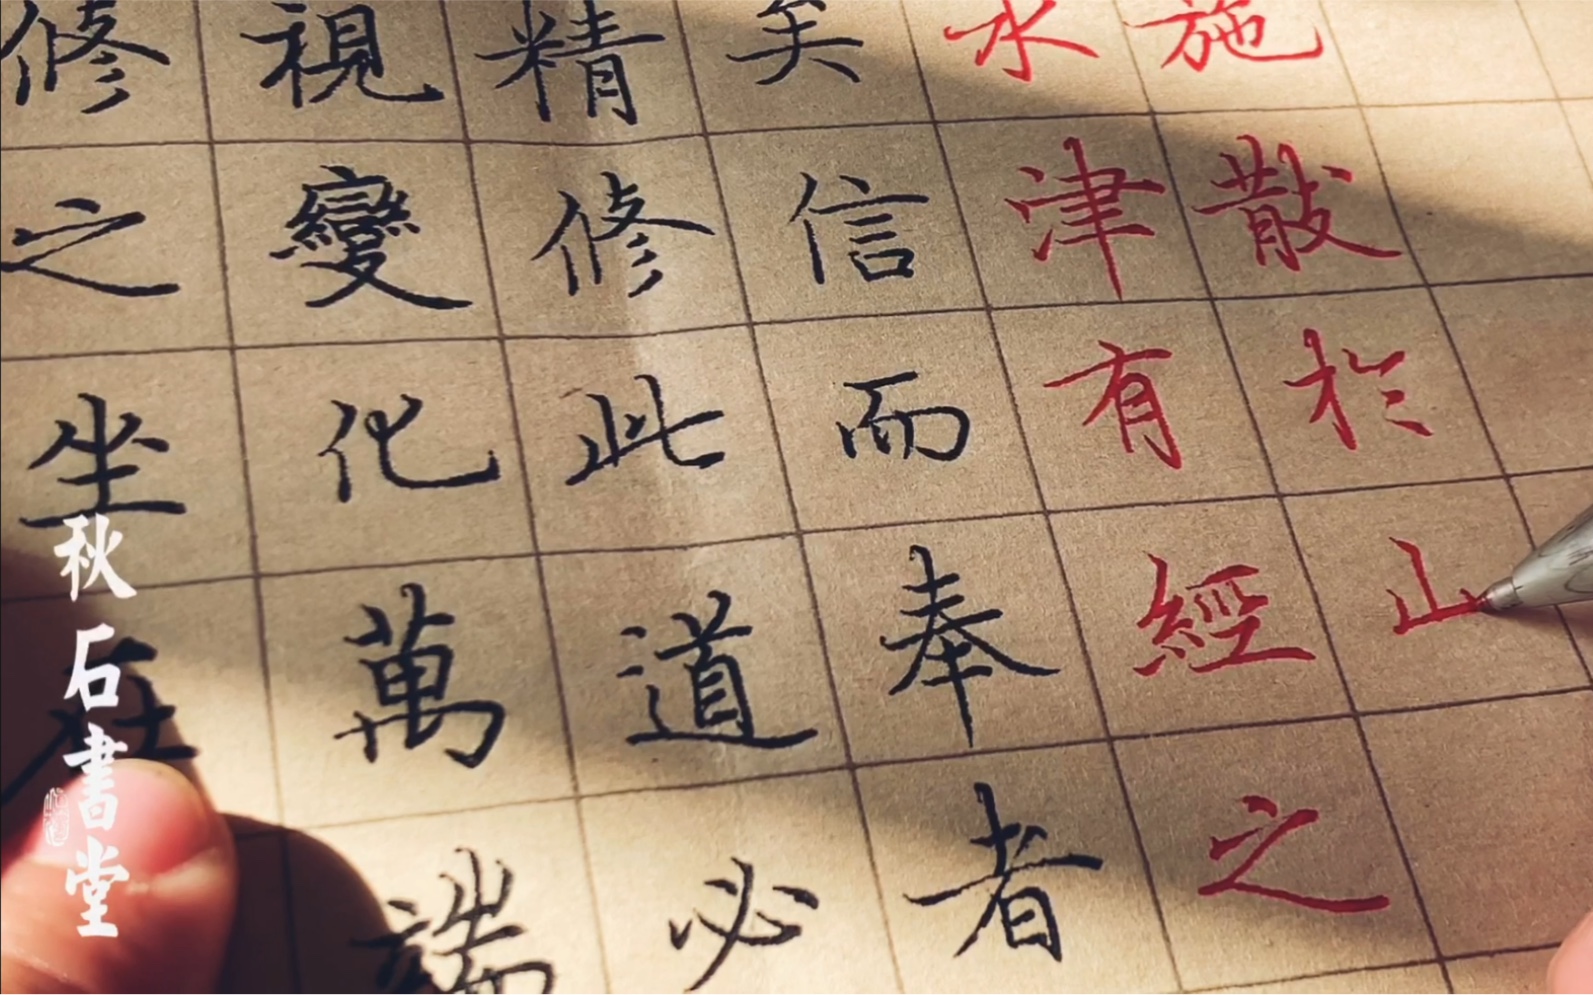 修之坐在
視變化萬端
精修此道必
矣信而奉者
水津有經之
施散於山
秋石書堂